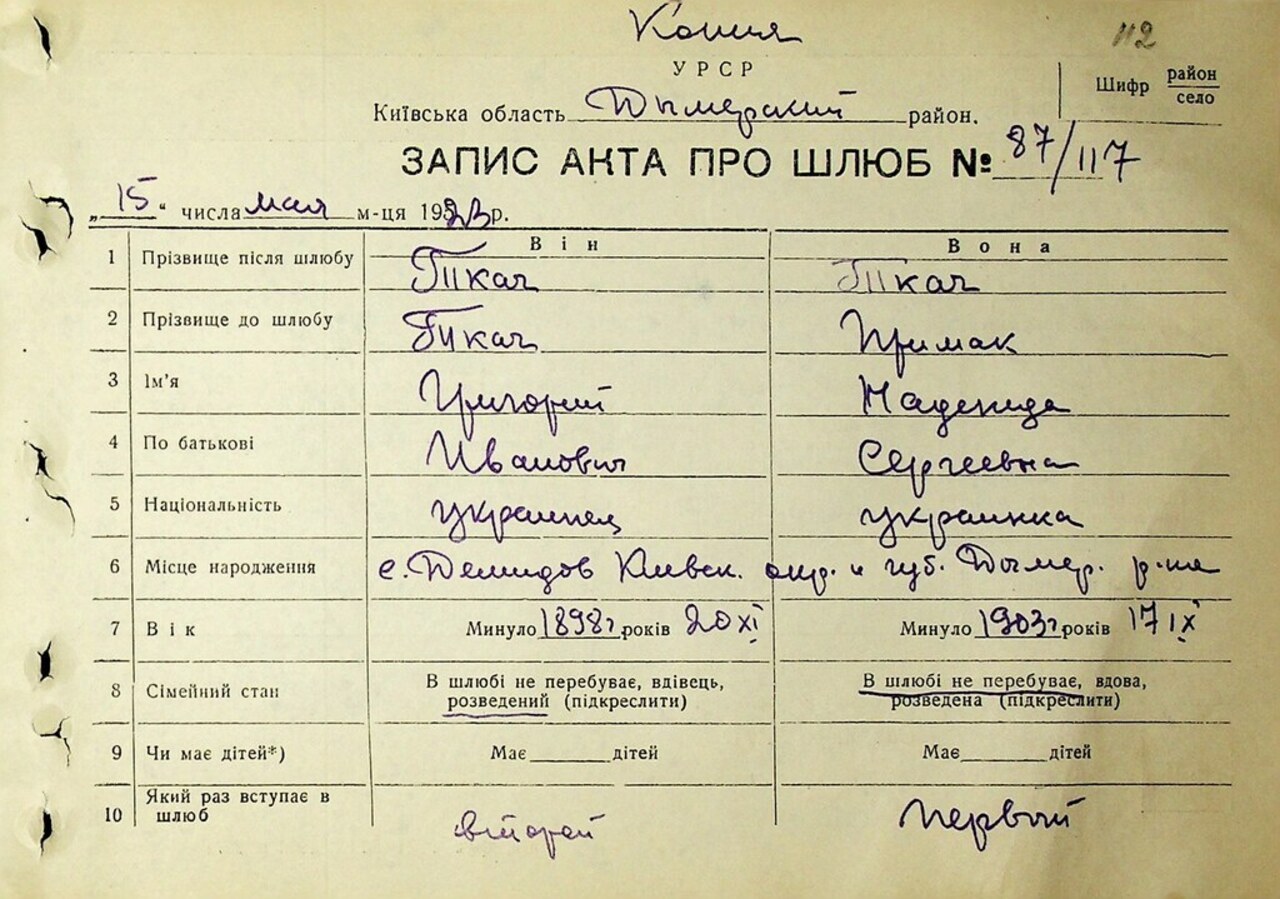 Копия
112
УРСР
Шифр район село
Київська область Дымерский район.
ЗАПИС АКТА ПРО ШЛЮБ № 87/117
„15“ числа мая м-ця 1923 р.
Він Вона
1 Прізвище після шлюбу Ткач Ткач
2 Прізвище до шлюбу Ткач Примак
3 Ім'я Григорий Надежда
4 По батькові Иванович Сергеевна
5 Національність украинец украинка
6 Місце народження с. Демидов Киевск. окр. и губ. Дымер. р-на
7 Вік Минуло 1898 г. років 20 XI Минуло 1903 г. років 17 IX
8 Сімейний стан В шлюбі не перебуває, вдівець, розведений (підкреслити) В шлюбі не перебуває, вдова, розведена (підкреслити)
9 Чи має дітей*) Має ______ дітей Має ______ дітей
10 Який раз вступає в шлюб второй первый